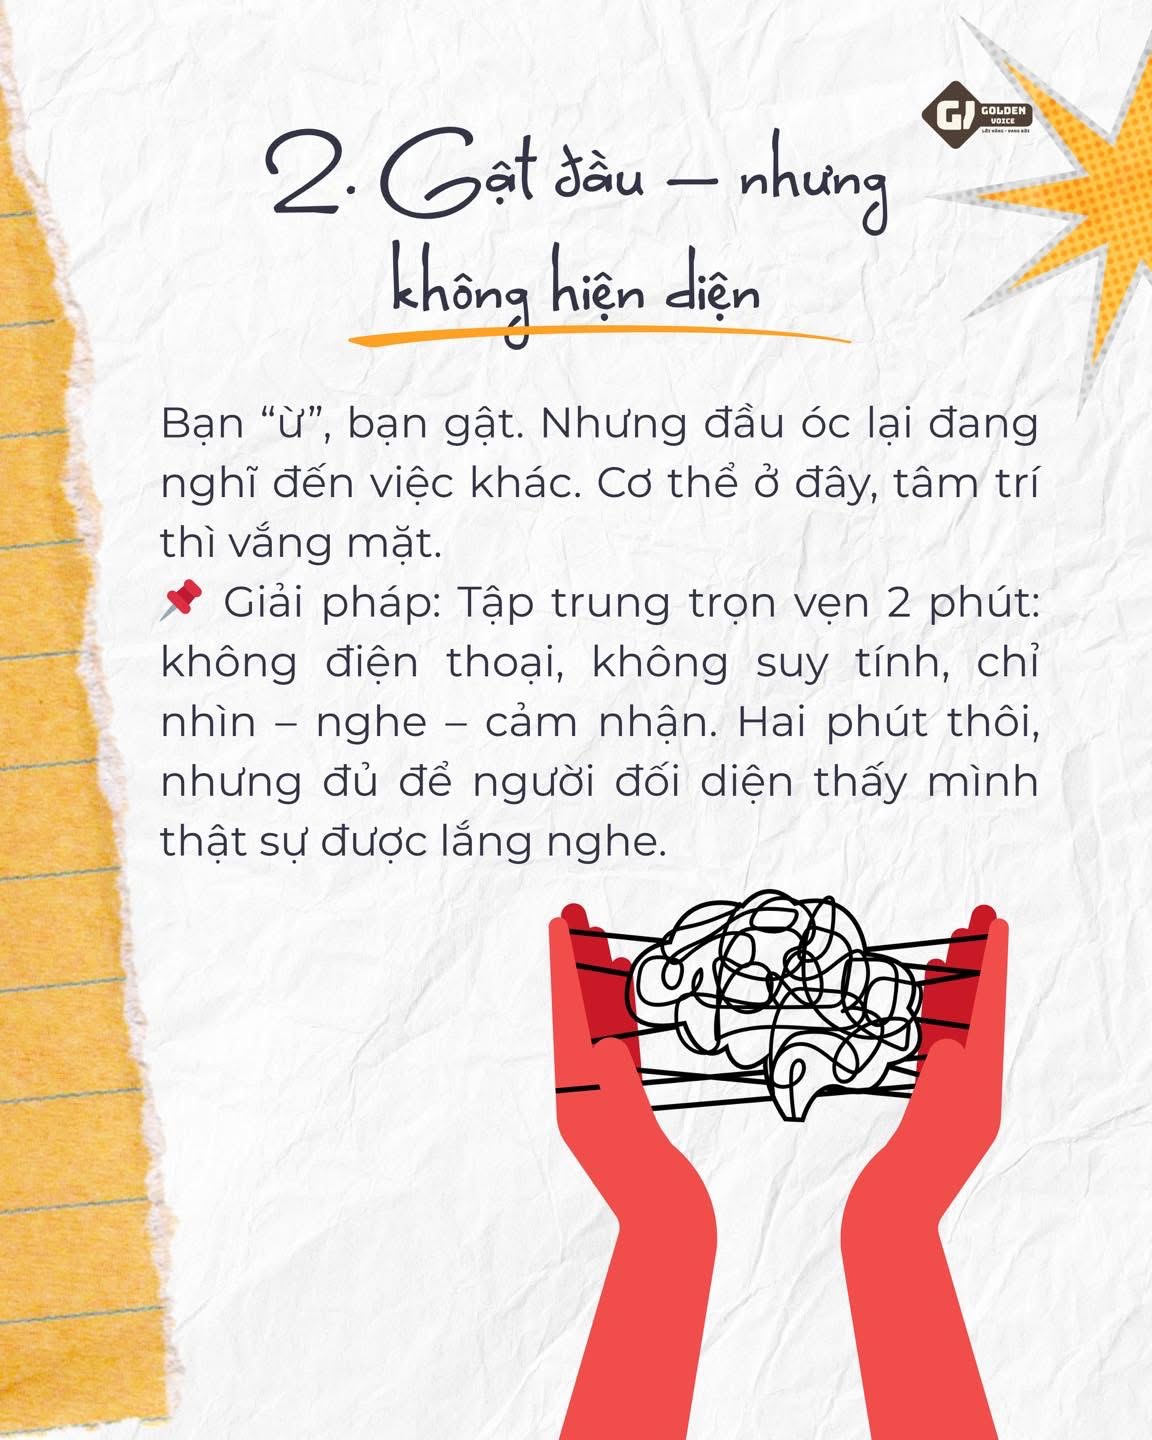 GOLDEN
VOICE
LỜI VÀNG - VANG ĐỜI
2. Gật đầu – nhưng
không hiện diện
Bạn “ừ”, bạn gật. Nhưng đầu óc lại đang
nghĩ đến việc khác. Cơ thể ở đây, tâm trí
thì vắng mặt.
📌 Giải pháp: Tập trung trọn vẹn 2 phút:
không điện thoại, không suy tính, chỉ
nhìn – nghe – cảm nhận. Hai phút thôi,
nhưng đủ để người đối diện thấy mình
thật sự được lắng nghe.